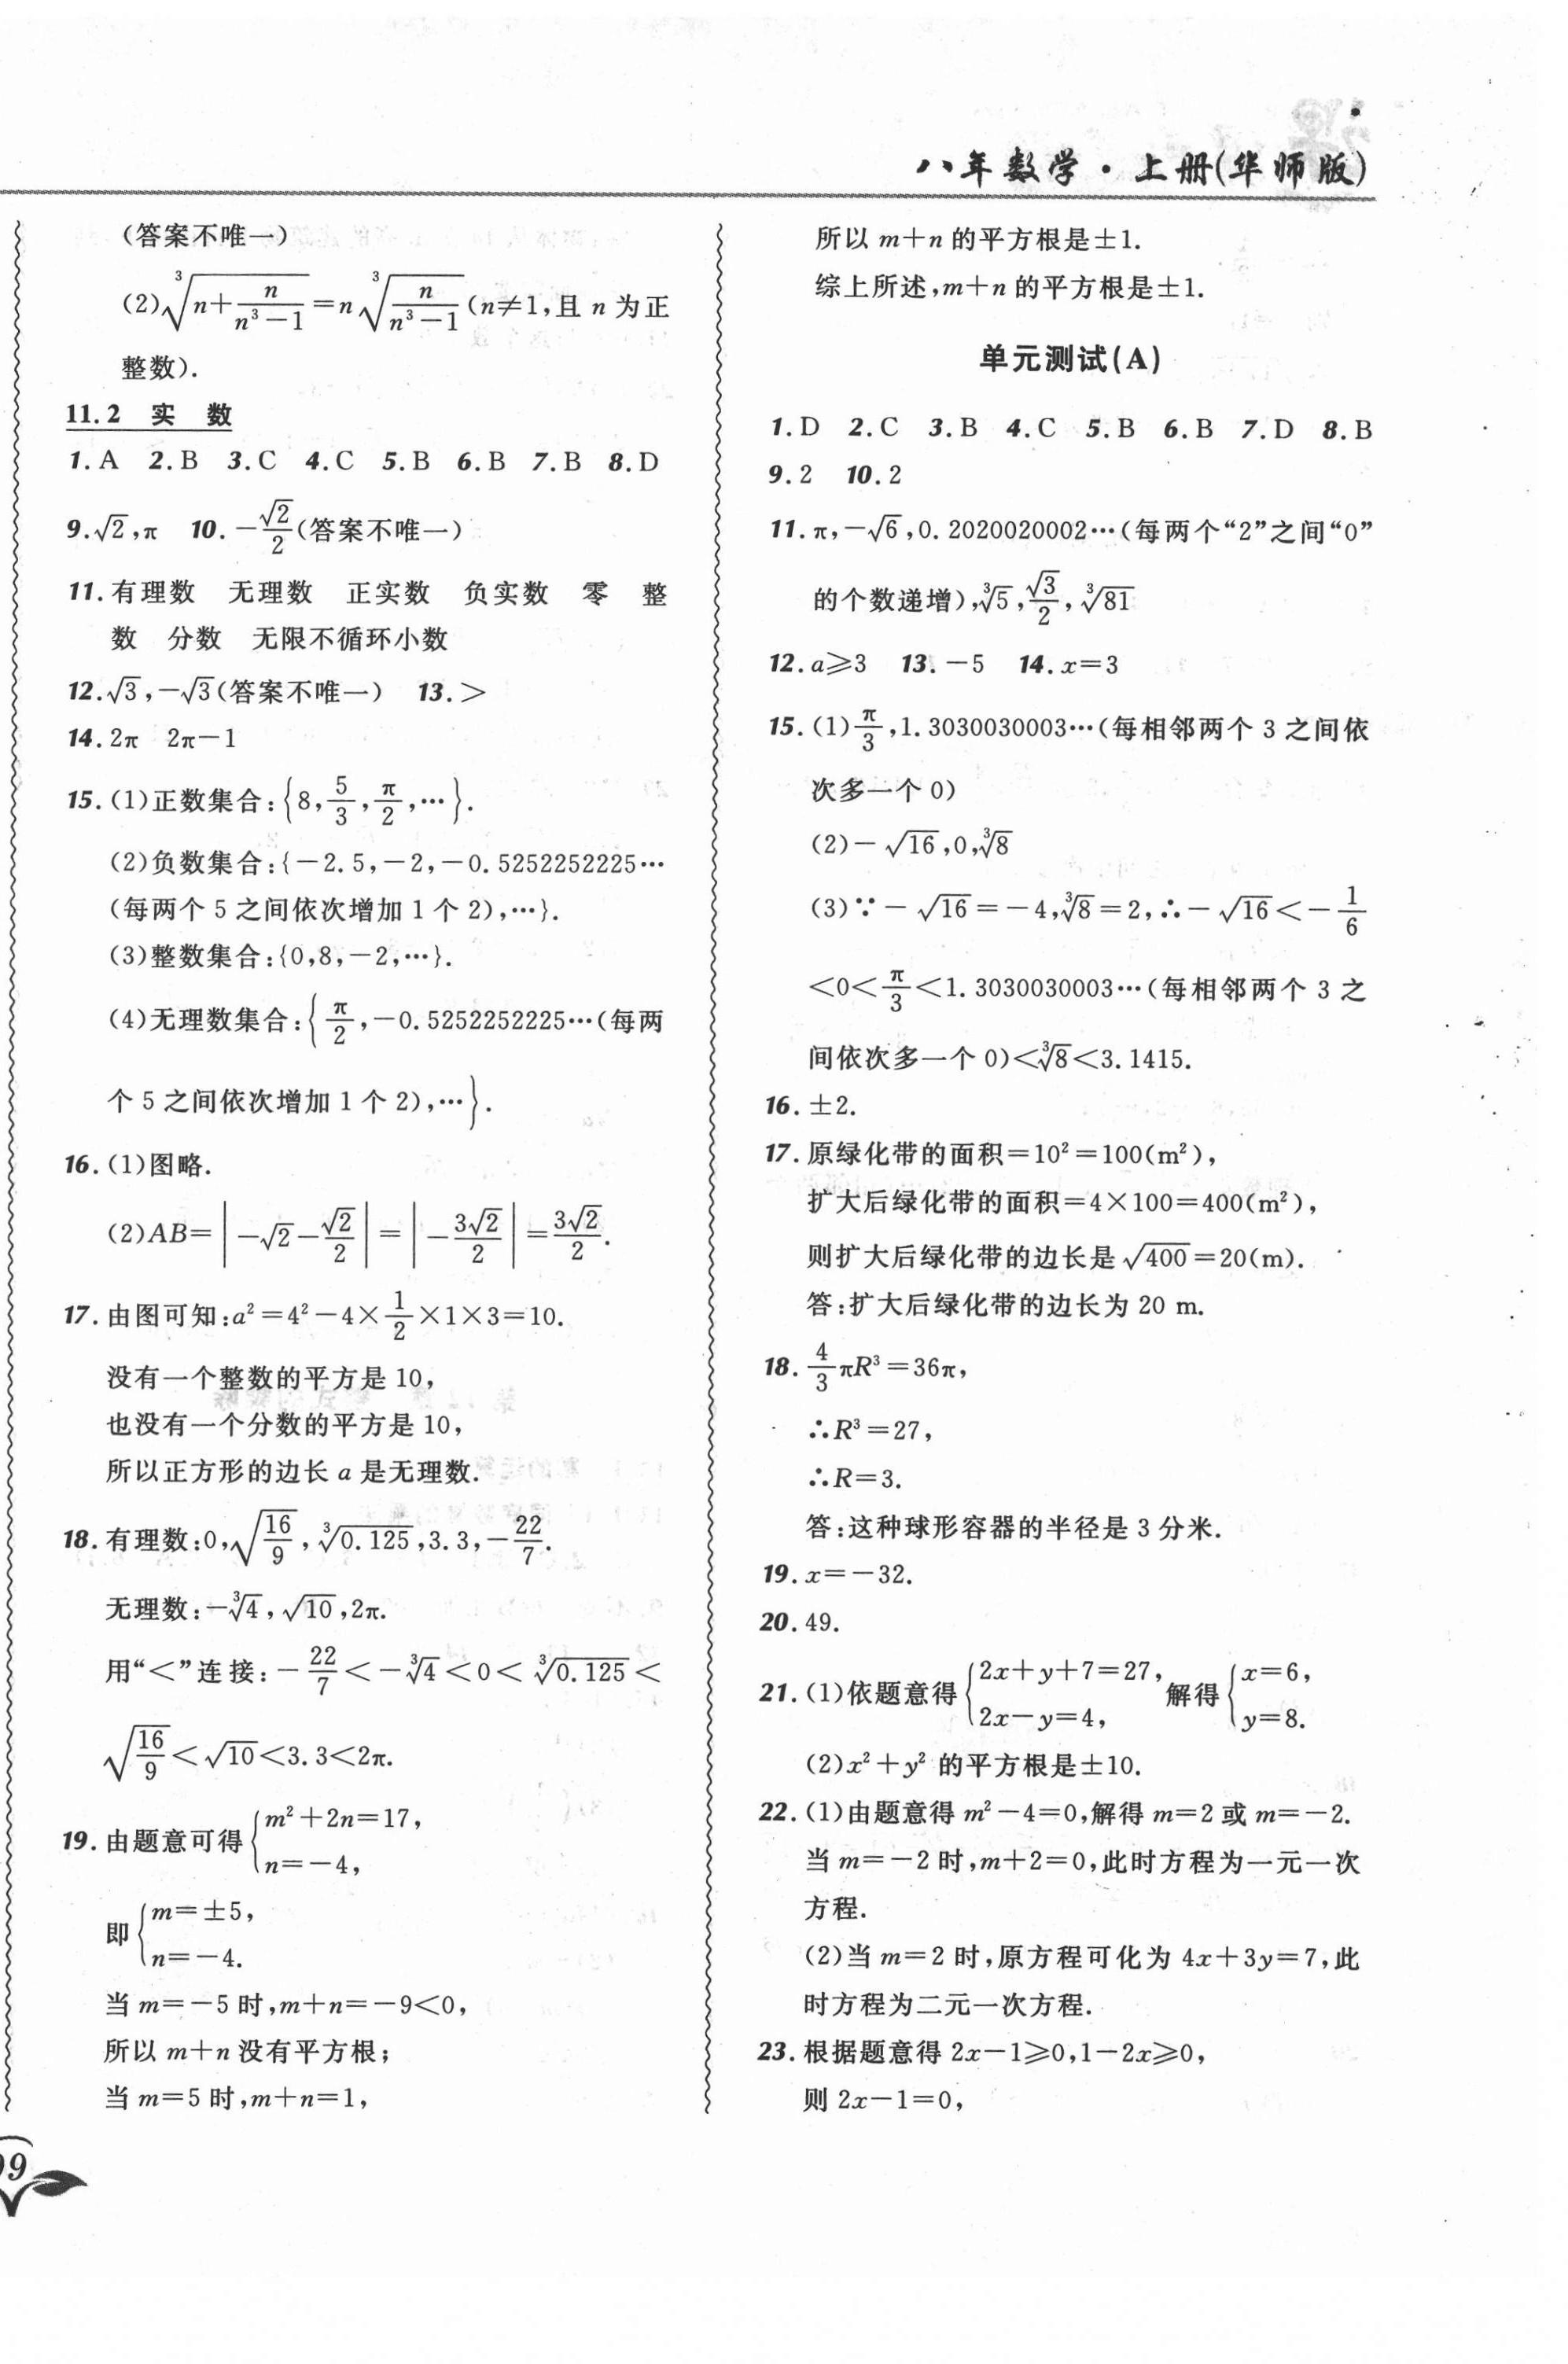 八年数学·上册(华师版)
(答案不唯一)
(2)∛(n+n/(n³-1))=n∛(n/(n³-1))(n≠1,且 n 为正
整数).
11.2 实 数
1.A 2.B 3.C 4.C 5.B 6.B 7.B 8.D
9.√2,π 10.-√2/2(答案不唯一)
11.有理数 无理数 正实数 负实数 零 整
数 分数 无限不循环小数
12.√3,-√3(答案不唯一) 13.>
14.2π 2π-1
15.(1)正数集合:{8,5/3,π/2,…}.
(2)负数集合:{-2.5,-2,-0.5252252225…
(每两个 5 之间依次增加 1 个 2),…}.
(3)整数集合:{0,8,-2,…}.
(4)无理数集合:{π/2,-0.5252252225…(每两
个 5 之间依次增加 1 个 2),…}.
16.(1)图略.
(2)AB=|-√2-√2/2|=|-3√2/2|=3√2/2.
17.由图可知:a²=4²-4×1/2×1×3=10.
没有一个整数的平方是 10,
也没有一个分数的平方是 10,
所以正方形的边长 a 是无理数.
18.有理数:0,√(16/9),∛0.125,3.3,-22/7.
无理数:-∛4,√10,2π.
用“<”连接:-22/7<-∛4<0<∛0.125<
√(16/9)<√10<3.3<2π.
19.由题意可得{m²+2n=17,
n=-4,
即{m=±5,
n=-4.
当 m=-5 时,m+n=-9<0,
所以 m+n 没有平方根;
当 m=5 时,m+n=1,
所以 m+n 的平方根是±1.
综上所述,m+n 的平方根是±1.
单元测试(A)
1.D 2.C 3.B 4.C 5.B 6.B 7.D 8.B
9.2 10.2
11.π,-√6,0.2020020002…(每两个“2”之间“0”
的个数递增),∛5,√3/2,∛81
12.a≥3 13.-5 14.x=3
15.(1)π/3,1.3030030003…(每相邻两个 3 之间依
次多一个 0)
(2)-√16,0,∛8
(3)∵-√16=-4,∛8=2,∴-√16<-1/6
<0<π/3<1.3030030003…(每相邻两个 3 之
间依次多一个 0)<∛8<3.1415.
16.±2.
17.原绿化带的面积=10²=100(m²),
扩大后绿化带的面积=4×100=400(m²),
则扩大后绿化带的边长是√400=20(m).
答:扩大后绿化带的边长为 20 m.
18.4/3πR³=36π,
∴R³=27,
∴R=3.
答:这种球形容器的半径是 3 分米.
19.x=-32.
20.49.
21.(1)依题意得{2x+y+7=27, 解得{x=6,
2x-y=4, y=8.
(2)x²+y² 的平方根是±10.
22.(1)由题意得 m²-4=0,解得 m=2 或 m=-2.
当 m=-2 时,m+2=0,此时方程为一元一次
方程.
(2)当 m=2 时,原方程可化为 4x+3y=7,此
时方程为二元一次方程.
23.根据题意得 2x-1≥0,1-2x≥0,
则 2x-1=0,